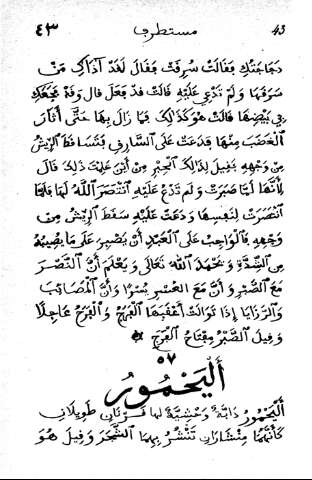 ٤٣ مستطرف 43
دجاجتك فقالت سرقت فقال لقد آذاك من
سرقها ولم تدعي عليه قالت قد فعل قال وقد فجعك
في بيضها قالت هو كذلك فما زال بها حتى أثار
الغضب منها فدعت على السارق فتساقط الريش
من وجهه فقيل لذلك الحبر من أين علمت ذلك قال
لأنها لما صبرت ولم تدع عليه انتصر الله لها فلما
انتصرت لنفسها ودعت عليه سقط الريش من
وجهه فالواجب على العبد أن يصبر على ما يصيبه
من الشدة ويحمد الله تعالى ويعلم أن النصر
مع الصبر وأن مع العسر يسرا وأن المصائب
والرزايا إذا توالت أعقبها الفرج والفرح عاجلا
وقيل الصبر مفتاح الفرج
٥٧
أليحمور
أليحمور دابة وحشية لها قرنان طويلان
كأنهما منشاران تنشر بهما الشجر وقيل هو